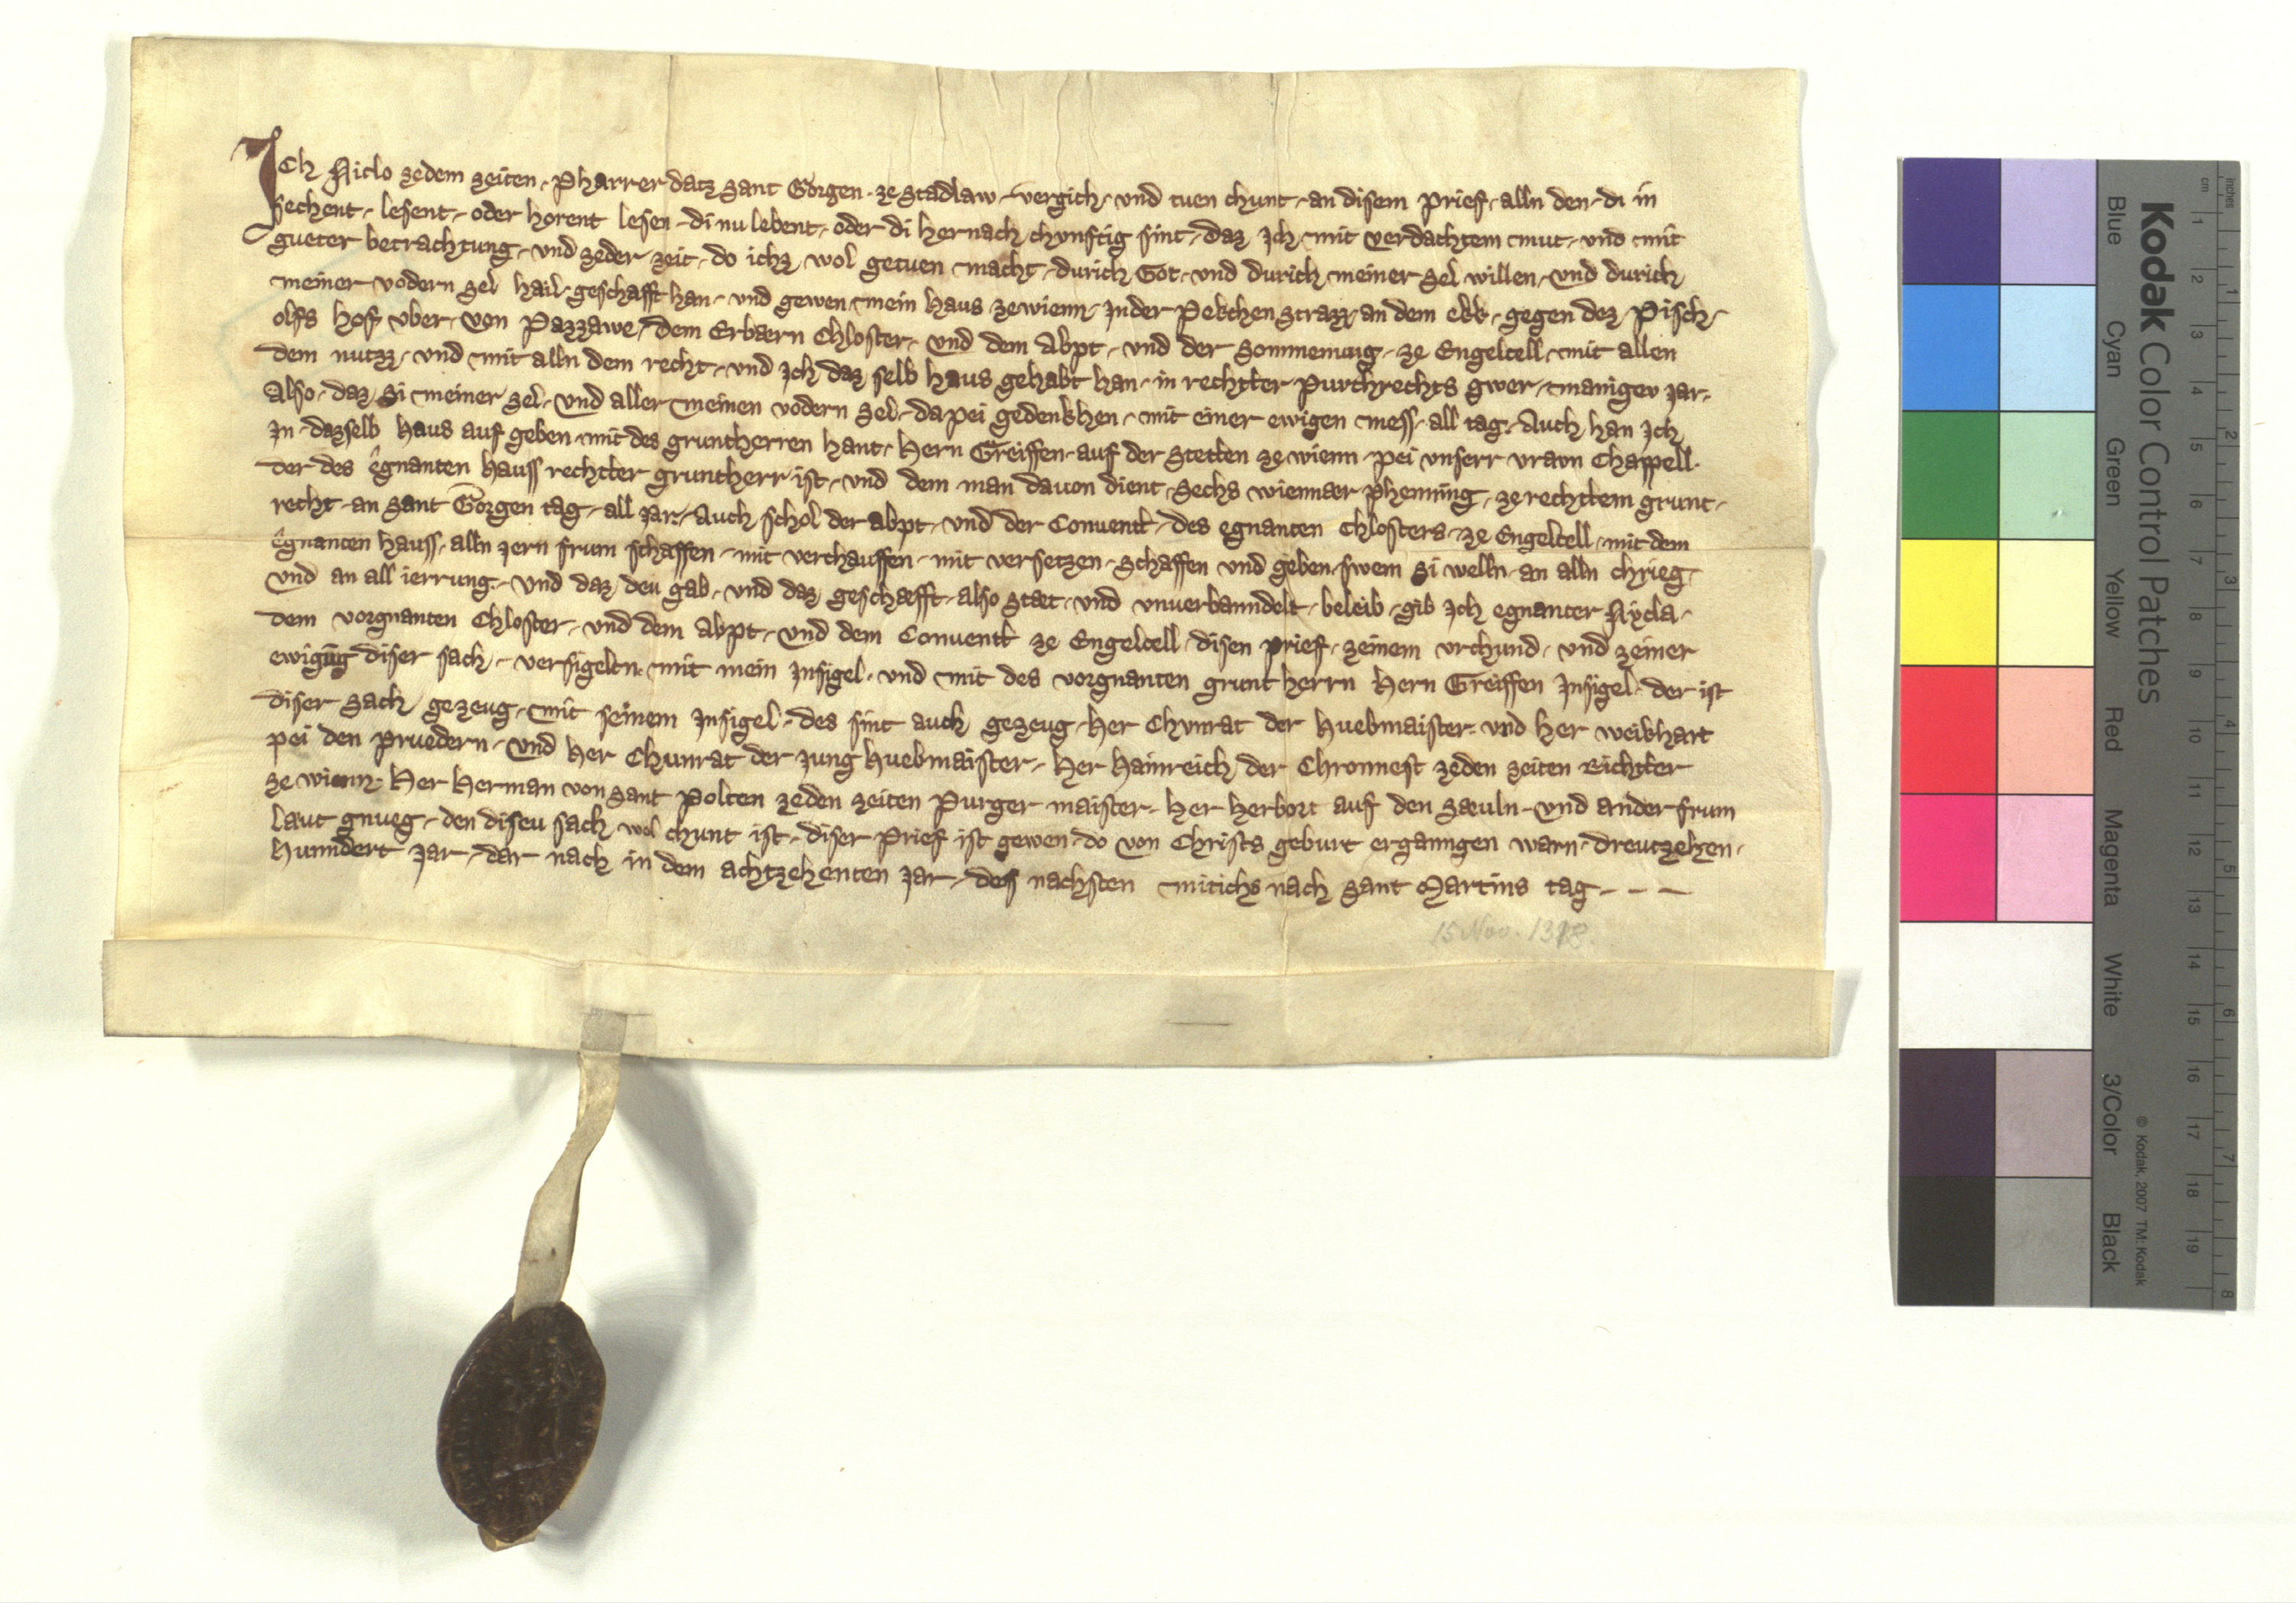 Ich Niclo zedem zeiten, Pharrer datz sant Gorgen, ze Stadlaw, vergich, und tuen chunt, an disem prief, alln den, di in
sechent, lesent, oder horent lesen, di nu lebent, oder di hernach chunftig sint, daz Ich, mit verdachtem mut, und mit
gueter betrachtung, und zeder zeit, do ichz wol getuen macht, durich Got, und durich meiner sel willen, und durich
meiner vodern sel hail, geschafft han, und gewen, mein haus zewienn, Inder Pekchen strazz, an dem ekk, gegen dez, Pisch-
olfs hof vber, von Pazzawe, dem Erbærn Chloster, und dem Abpt, und der Sommenung, ze Engelcell, mit allen
dem nutzz, und mit alln dem recht, und Ich daz selb haus gehabt han, in rechtter purchrechts gwer, manigev Jar,
Also, daz, si meiner sel, und aller meinen vodern sel, dapei gedenkhen, mit einer ewigen mess, all tag, Auch han Ich
In, dazselb haus auf geben, mit des gruntherren hant, Hern Greiffen, auf der Stetten ze wienn, pei unserr vravn Chappell,
der des egnanten hauss rechtter gruntherr ist, und dem man davon dient, Sechs wiennær phenning, ze rechttem grunt-
recht, an sant Gorgen tag, all Jar, Auch schol der abpt, und der Conventt, des egnanten Chlosters, ze Engelcell, mit dem
egnanten hauss, alln Iern frum schaffen, mit verchauffen, mit versetzen, schaffen und geben, swem si welln, an alln chrieg,
und an all ierrung, und daz deu gab, und daz geschæfft, also stæt, und unuerbanndelt, beleib, gib Ich egnanter Nycla,
dem vorgnanten Chloster, und dem abpt, und dem Conventt ze Engelcell, disen prief, zeinem vrchund, und zeiner
ewigung diser sach, versigeltn, mit mein Insigel, und mit des vorgnanten grunt herrn Hern Greiffen Insigel, der ist
diser sach gezeug, mit seinem Insigel, des sint auch gezeug, Her Chunrat der Huebmaister, und her weikhart
pei den pruedern, und her Chunrat der Jung huebmaister, her hainreich der Chronnest zeden zeiten Richtter
ze wienn, Her Herman von sant Polten zeden zeiten Purger maister, her herbort auf den sæuln, und ander frum
laut gnueg, den diseu sach wol chunt ist, diser Prief ist gewen, do von Christs geburt ergangen warn, dreutzehen,
hunndert Jar, dar nach in dem achtzehenten Jar, des nachsten mitichs nach sant Martins tag - - -
15 Nov. 1318.
Kodak Color Control Patches
Blue Cyan Green Yellow Red Magenta White 3/Color Black
© Kodak, 2007 TM: Kodak
cm 1 2 3 4 5 6 7 8 9 10 11 12 13 14 15 16 17 18 19
inches 1 2 3 4 5 6 7 8